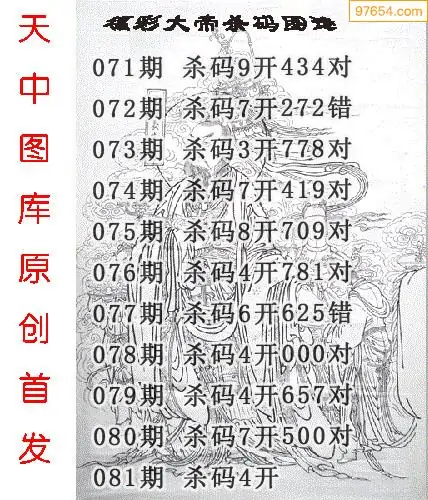 97654.com
福彩大帝杀码图迷
071期 杀码9开434对
072期 杀码7开272错
073期 杀码3开778对
074期 杀码7开419对
075期 杀码8开709对
076期 杀码4开781对
077期 杀码6开625错
078期 杀码4开000对
079期 杀码4开657对
080期 杀码7开500对
081期 杀码4开
天中图库原创首发